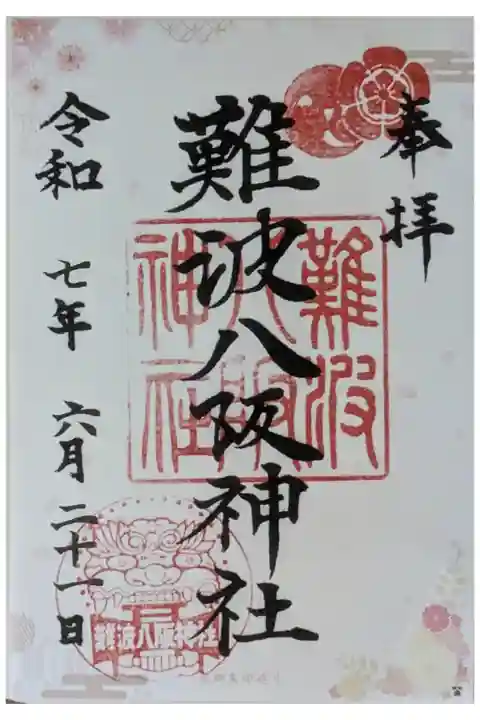 奉拝
難波八阪神社
令和 七年 六月 二十一日
難波
八阪
神社
難波八阪神社